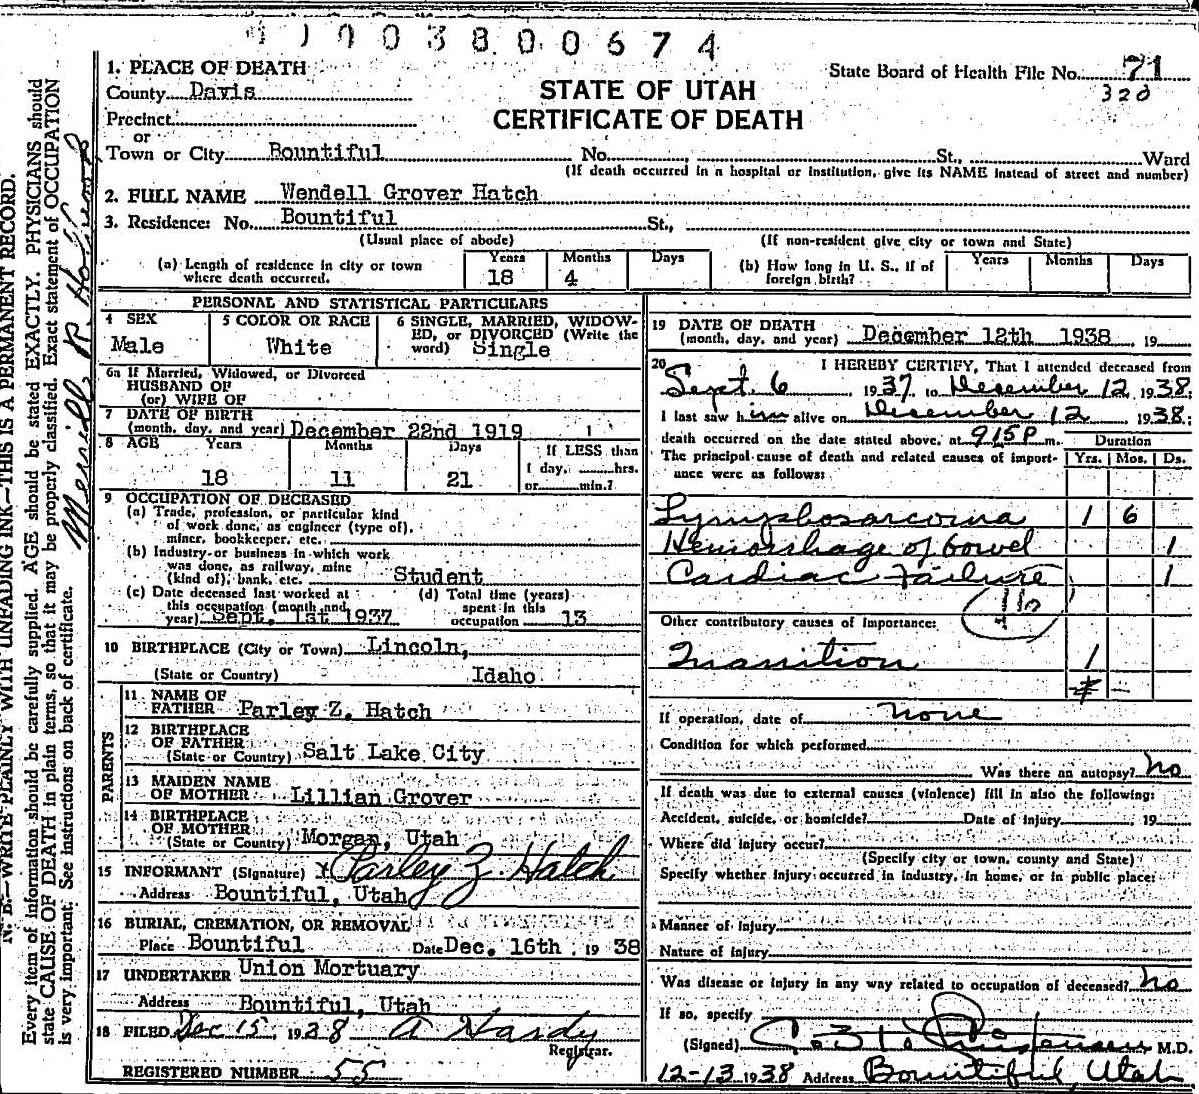 1003800674
1. PLACE OF DEATH
STATE OF UTAH
CERTIFICATE OF DEATH
State Board of Health File No. 71
320
County Davis
Precinct
or
Town or City Bountiful No. , St., Ward
(If death occurred in a hospital or institution, give its NAME instead of street and number)
2. FULL NAME Wendell Grover Hatch
3. Residence: No. Bountiful St.,
(Usual place of abode) (If non-resident give city or town and State)
(a) Length of residence in city or town where death occurred. Years 18 Months 4 Days
(b) How long in U. S., if of foreign birth? Years Months Days
PERSONAL AND STATISTICAL PARTICULARS
4 SEX Male
5 COLOR OR RACE White
6 SINGLE, MARRIED, WIDOWED, or DIVORCED (Write the word) Single
6a If Married, Widowed, or Divorced
HUSBAND OF
(or) WIFE OF
7 DATE OF BIRTH
(month, day, and year) December 22nd 1919
8 AGE Years Months Days If LESS than
1 day, hrs.
or min.?
18 11 21
9 OCCUPATION OF DECEASED
(a) Trade, profession, or particular kind
of work done, as engineer (type of),
miner, bookkeeper, etc.
(b) Industry or business in which work
was done, as railway, mine
(kind of), bank, etc. Student
(c) Date deceased last worked at
this occupation (month and
year) Sept. 1st 1937
(d) Total time (years)
spent in this
occupation 13
10 BIRTHPLACE (City or Town) Lincoln,
(State or Country) Idaho
PARENTS
11 NAME OF
FATHER Parley Z. Hatch
12 BIRTHPLACE
OF FATHER
(State or Country) Salt Lake City
13 MAIDEN NAME
OF MOTHER Lillian Grover
14 BIRTHPLACE
OF MOTHER
(State or Country) Morgan, Utah
15 INFORMANT (Signature) x Parley Z. Hatch
Address Bountiful, Utah
16 BURIAL, CREMATION, OR REMOVAL
Place Bountiful Date Dec. 16th 1938
17 UNDERTAKER Union Mortuary
Address Bountiful, Utah
18 FILED Dec 15, 1938 A Hardy
Registrar.
REGISTERED NUMBER 55
19 DATE OF DEATH
(month, day, and year) December 12th 1938 , 19
20 I HEREBY CERTIFY, That I attended deceased from
Sept. 6 1937 to December 12, 1938.
I last saw him alive on December 12 1938;
death occurred on the date stated above, at 915P m.
The principal cause of death and related causes of importance were as follows:
Duration
Yrs. Mos. Ds.
Lymphosarcoma 1 6
Hemorrhage of bowel 1
Cardiac Failure 1
Other contributory causes of importance:
Inanition 1
If operation, date of none
Condition for which performed
Was there an autopsy? No
If death was due to external causes (violence) fill in also the following:
Accident, suicide, or homicide? Date of injury , 19
Where did injury occur?
(Specify city or town, county and State)
Specify whether injury occurred in industry, in home, or in public place:
Manner of injury
Nature of injury
Was disease or injury in any way related to occupation of deceased? No
If so, specify
(Signed) M.D.
12-13 1938 Address Bountiful, Utah
N. B.—WRITE PLAINLY WITH UNFADING INK—THIS IS A PERMANENT RECORD.
Every item of information should be carefully supplied. AGE should be stated EXACTLY. PHYSICIANS should
state CAUSE OF DEATH in plain terms, so that it may be properly classified. Exact statement of OCCUPATION
is very important. See instructions on back of certificate.
Merrill R.